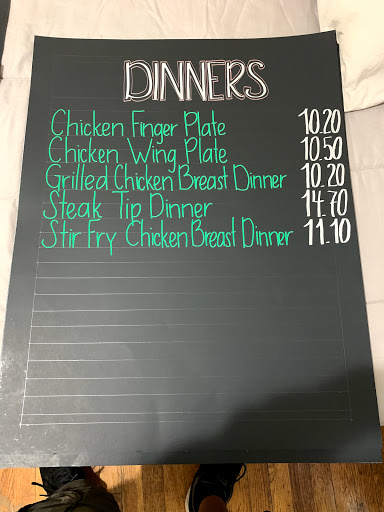 DINNERS
Chicken Finger Plate 10.20
Chicken Wing Plate 10.50
Grilled Chicken Breast Dinner 10.20
Steak Tip Dinner 14.70
Stir Fry Chicken Breast Dinner 11.10